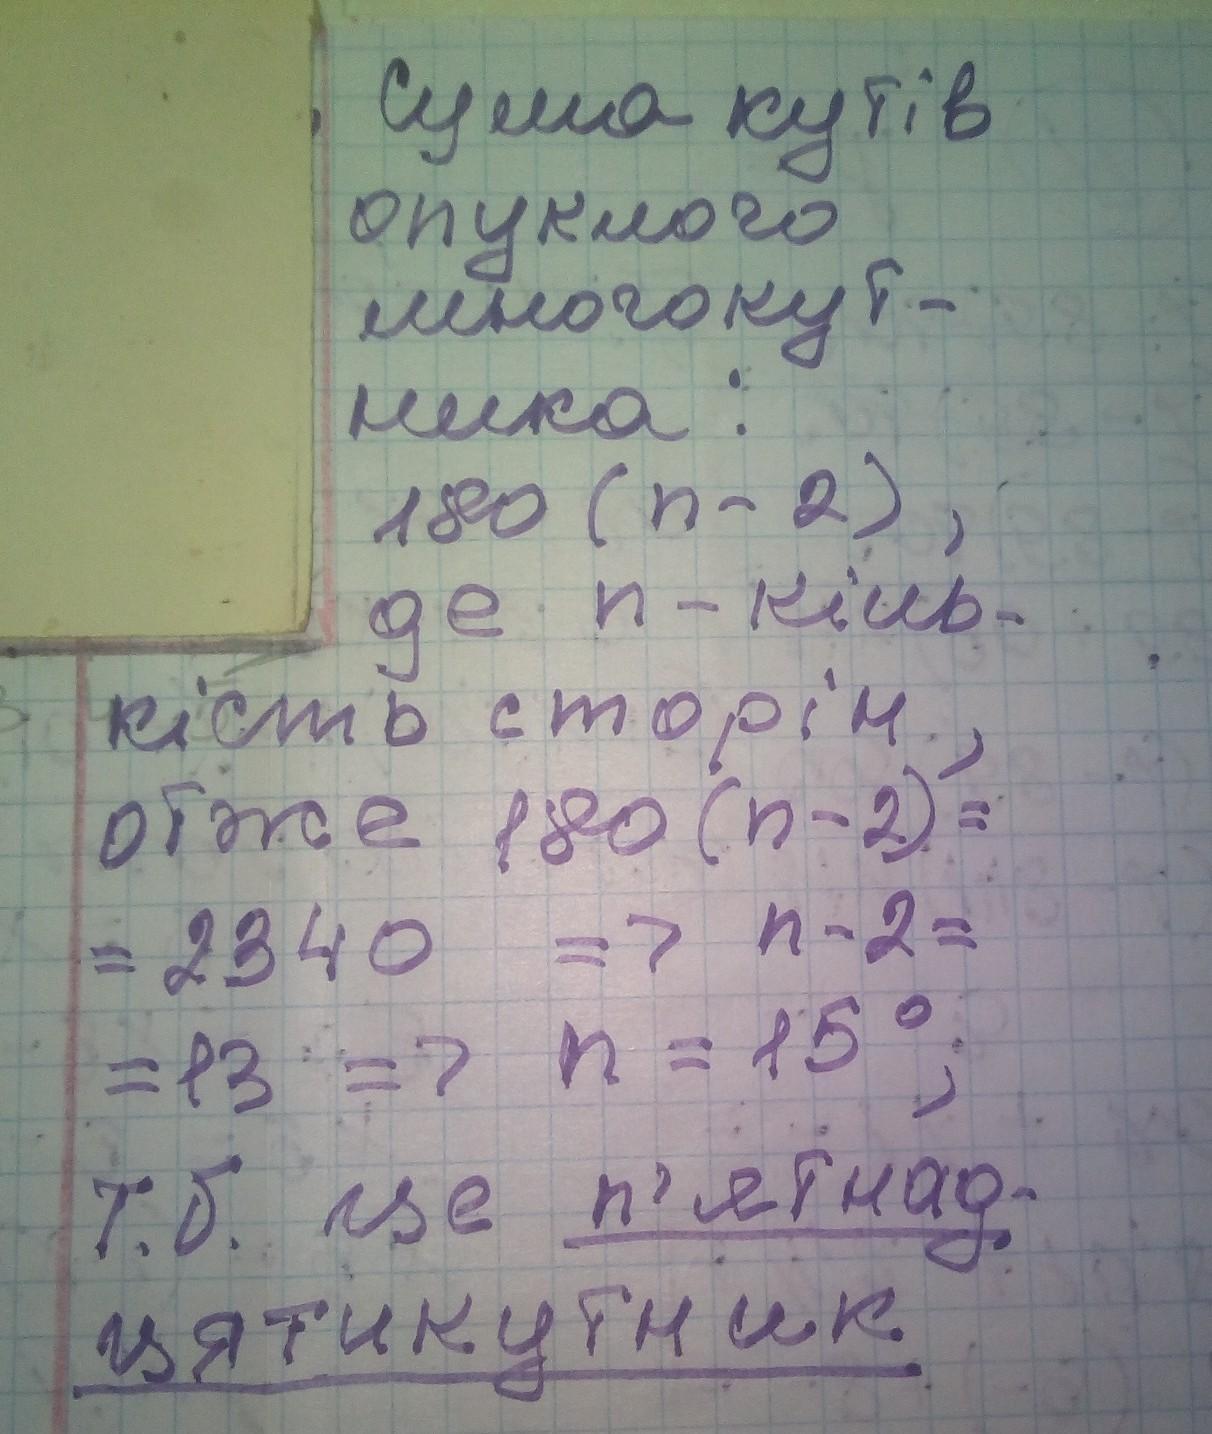 Сума кутів
опуклого
многокут-
ника:
180 (n - 2),
де n - кіль-
кість сторін,
отже 180 (n - 2) =
= 2340 => n - 2 =
= 13 => n = 15°;
т.б. це п'ятнад-
цятикутник.